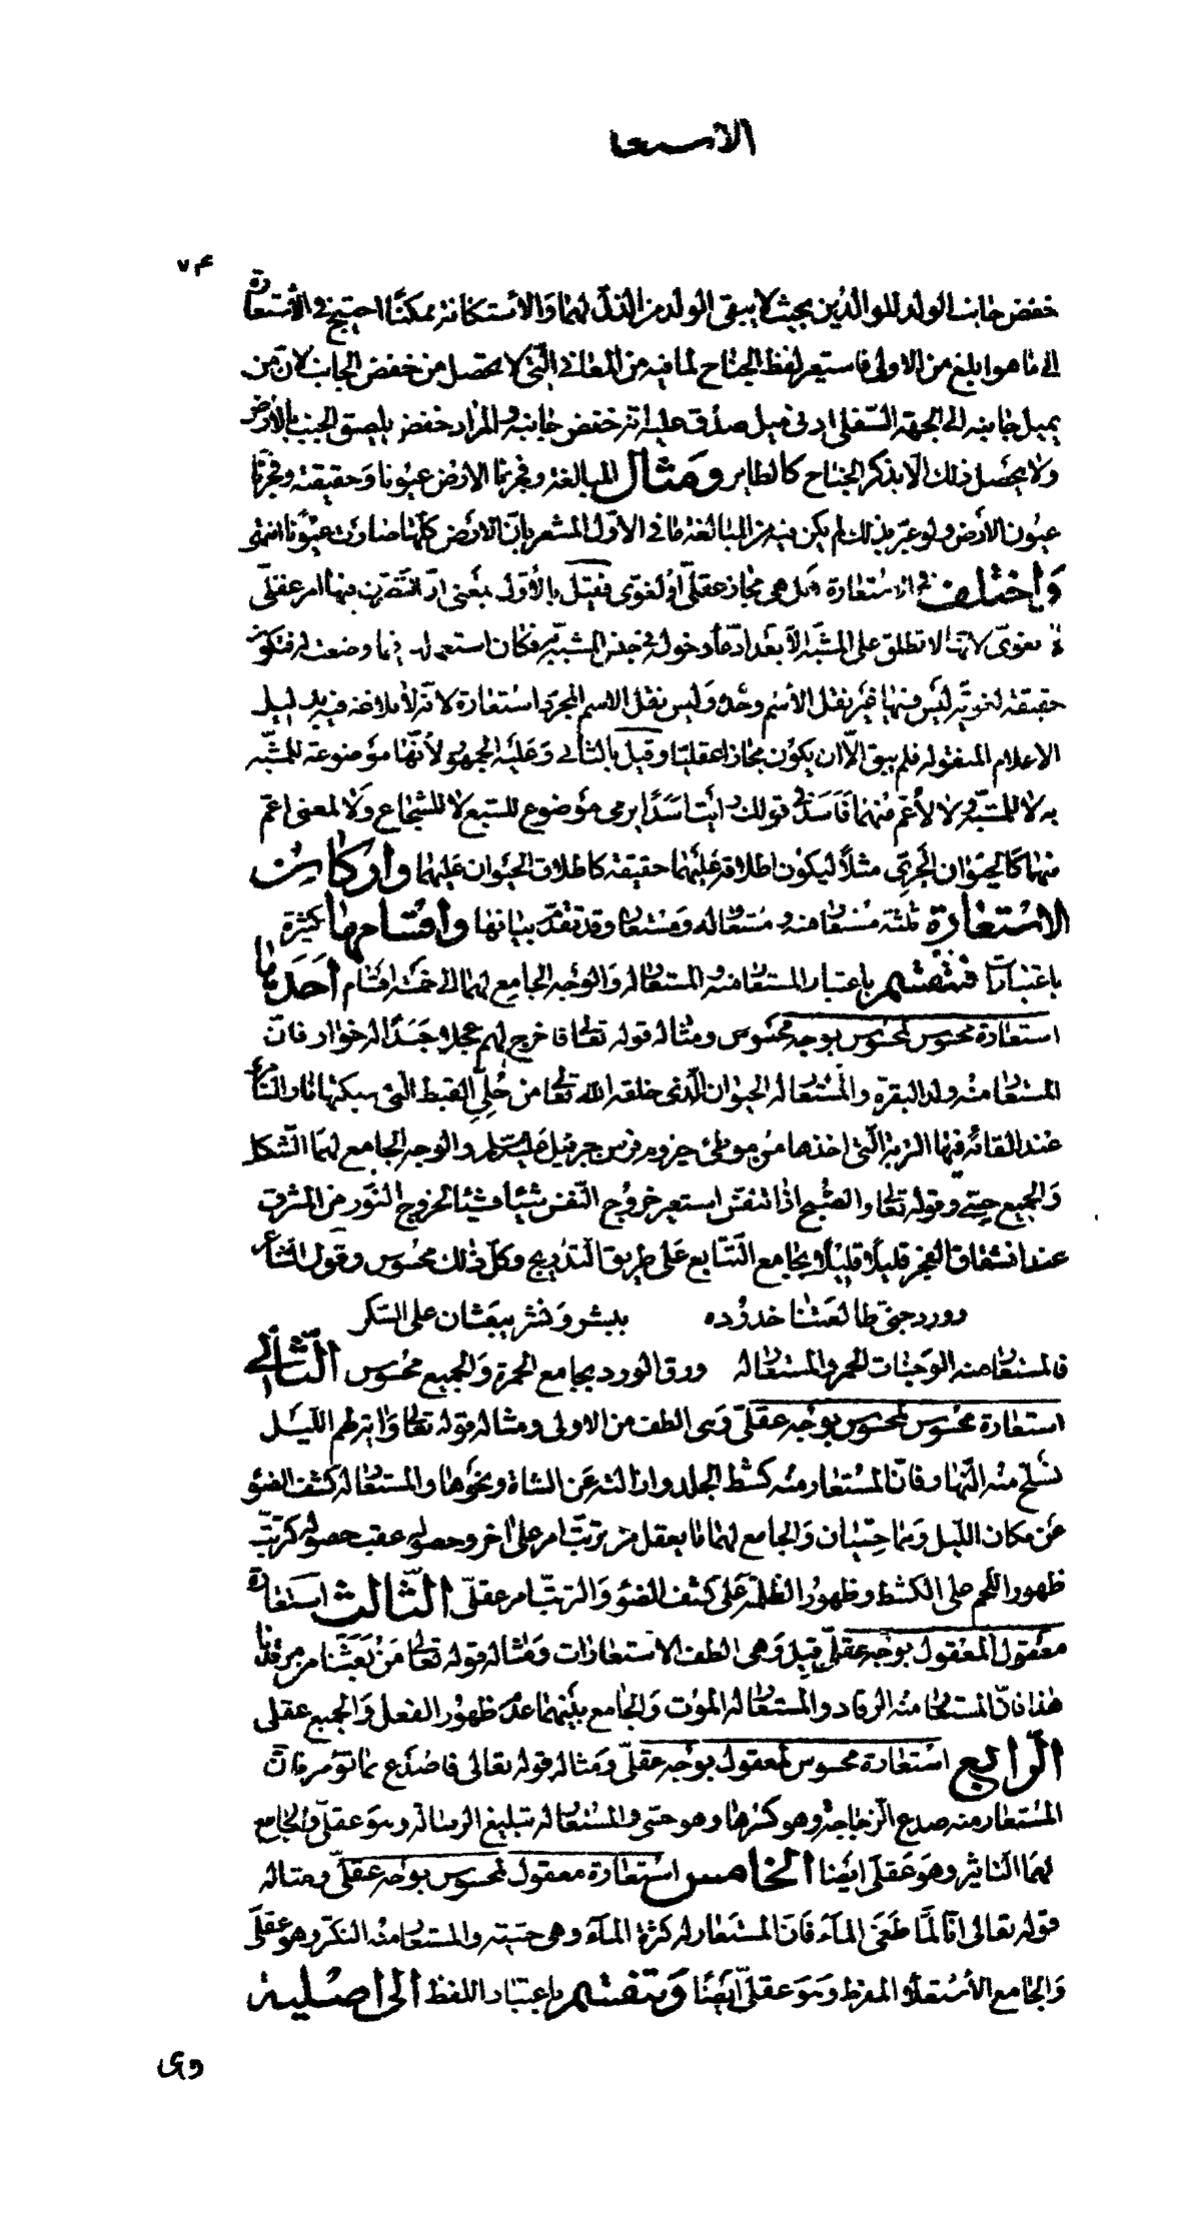 الاستعا
٧٤
خفض جانب الولد للوالدين بحيث لا يبقى الولد من الذل لهما والاستكانة ممكنا احتيج في الاستعارة
الى ما هو ابلغ من الاولى فاستعير لفظ الجناح لما فيه من المعاني التي لا تحصل من خفض الجانب لان من
يميل جانبه الى الجهة السفلى ادنى ميل صدق عليه انه خفض جانبه والمراد خفض يلصق الجنب بالارض
ولا يحصل ذلك الا بذكر الجناح كالطاير ومثال المبالغة وفجرنا الارض عيونا وحقيقته وفجرنا
عيون الارض ولو عبر بذلك لم يكن فيه من المبالغة ما في الاول المشعر بان الارض كلها صارت عيونا انتهى
واختلف في الاستعارة هل هي مجاز عقلي او لغوي فقيل بالاول بمعنى ان التصرف فيها امر عقلي
لا لغوي لانها لا تطلق على المشبه الا بعد ادعاء دخوله في جنس المشبه به فكان استعماله فيما وضعت له فتكون
حقيقة لغوية ليس فيها غير نقل الاسم وحده وليس نقل الاسم المجرد استعارة لانه لا بلاغة فيه بدليل
الاعلام المنقولة فلم يبق الا ان يكون مجازا عقليا وقيل بالثاني وعليه الجمهور لانها موضوعة للمشبه
به لا للمشبه ولا لاعم منهما فاسد في قولك رأيت اسدا يرمي موضوع للسبع لا للشجاع ولا لمعنى اعم
منهما كالحيوان الجري مثلا ليكون اطلاقه عليهما حقيقة كاطلاق الحيوان عليهما واركان
الاستعارة ثلثة مستعار منه ومستعار له ومستعار وقد تقدم بيانها واقسامها كثيرة
باعتبارات فتنقسم باعتبار المستعار منه والمستعار له والوجه الجامع لهما الى خمسة اقسام احدها
استعارة محسوس لمحسوس بوجه محسوس ومثاله قوله تعالى فاخرج لهم عجلا جسدا له خوار فان
المستعار منه ولد البقرة والمستعار له الحيوان الذي خلقه الله تعالى من حلي القبط التي سبكتها نار السامري
عند القائه فيها التربة التي اخذها من موطئ حيزوم فرس جبرئيل عليه السلم والوجه الجامع لهما الشكل
والجميع حسي وقوله تعالى والصبح اذا تنفس استعير خروج النفس شيئا فشيئا لخروج النور من المشرق
عند انشقاق الفجر قليلا قليلا بجامع التتابع على طريق التدريج وكل ذلك محسوس وقول الشاعر
وورد جني طالعتنا خدوده ببشر ونشر يبعثان على السكر
فالمستعار منه الوجنات الحمر والمستعار له ورق الورد بجامع الحمرة والجميع محسوس الثاني
استعارة محسوس لمحسوس بوجه عقلي وهي الطف من الاولى ومثاله قوله تعالى واية لهم الليل
نسلخ منه النهار فان المستعار منه كشط الجلد وازالته عن الشاة ونحوها والمستعار له كشف الضوء
عن مكان الليل وهما حسيان والجامع لهما ما يعقل من ترتب امر على اخر وحصوله عقب حصوله كترتب
ظهور اللحم على الكشط وظهور الظلمة على كشف الضوء والترتب امر عقلي الثالث استعارة
معقول لمعقول بوجه عقلي قيل وهي الطف الاستعارات ومثاله قوله تعالى من بعثنا من مرقدنا
هذا فان المستعار منه الرقاد والمستعار له الموت والجامع بينهما عدم ظهور الفعل والجميع عقلي
الرابع استعارة محسوس لمعقول بوجه عقلي ومثاله قوله تعالى فاصدع بما تؤمر فان
المستعار منه صدع الزجاجة وهو كسرها وهو حسي والمستعار له تبليغ الرسالة وهو عقلي والجامع
لهما التاثير وهو عقلي ايضا الخامس استعارة معقول لمحسوس بوجه عقلي ومثاله
قوله تعالى انا لما طغى الماء فان المستعار له كثرة الماء وهي حسية والمستعار منه التكبر وهو عقلي
والجامع الاستعلاء المفرط وهو عقلي ايضا وتنقسم باعتبار اللفظ الى اصلية
وهي